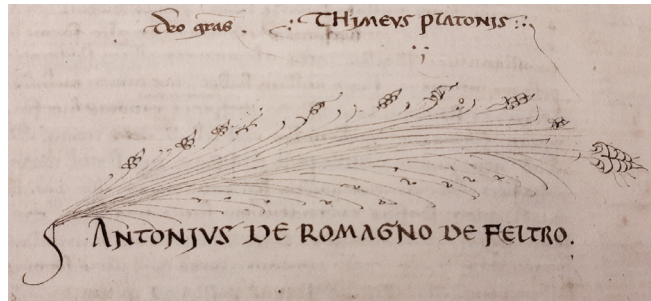 Deo gras . .: THIMEVS PLATONIS .:.
ANTONJVS DE ROMAGNO DE FELTRO.